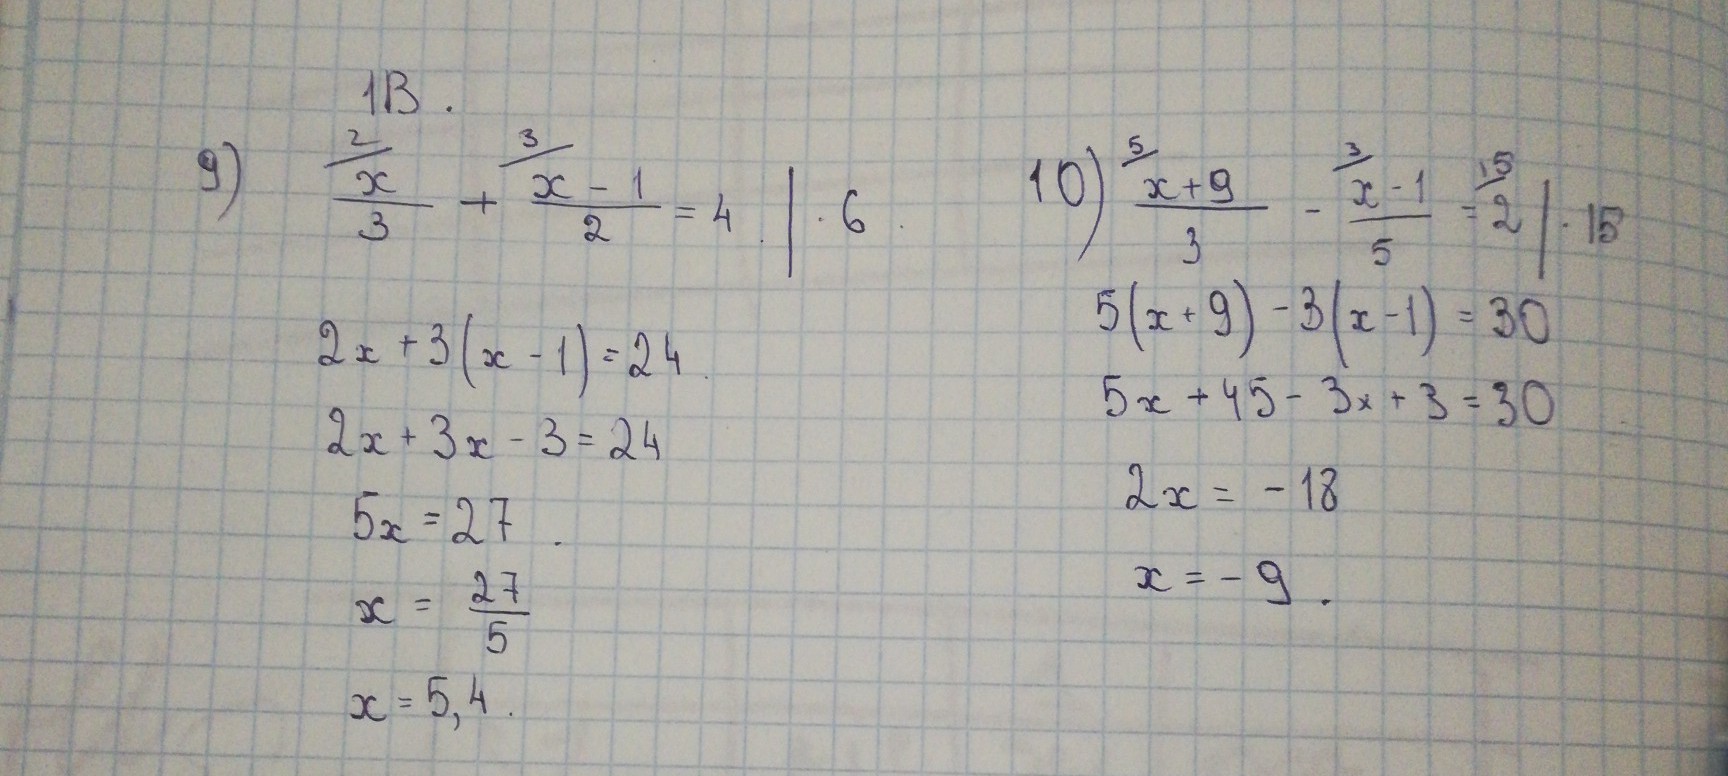 1В.
9) 2/ x/3 + 3/ (x-1)/2 = 4. | · 6.
2x + 3(x - 1) = 24.
2x + 3x - 3 = 24
5x = 27.
x = 27/5
x = 5,4.
10) 5/ (x+9)/3 - 3/ (x-1)/5 = 15/ 2 | · 15
5(x+9) - 3(x-1) = 30
5x + 45 - 3x + 3 = 30
2x = -18
x = -9.